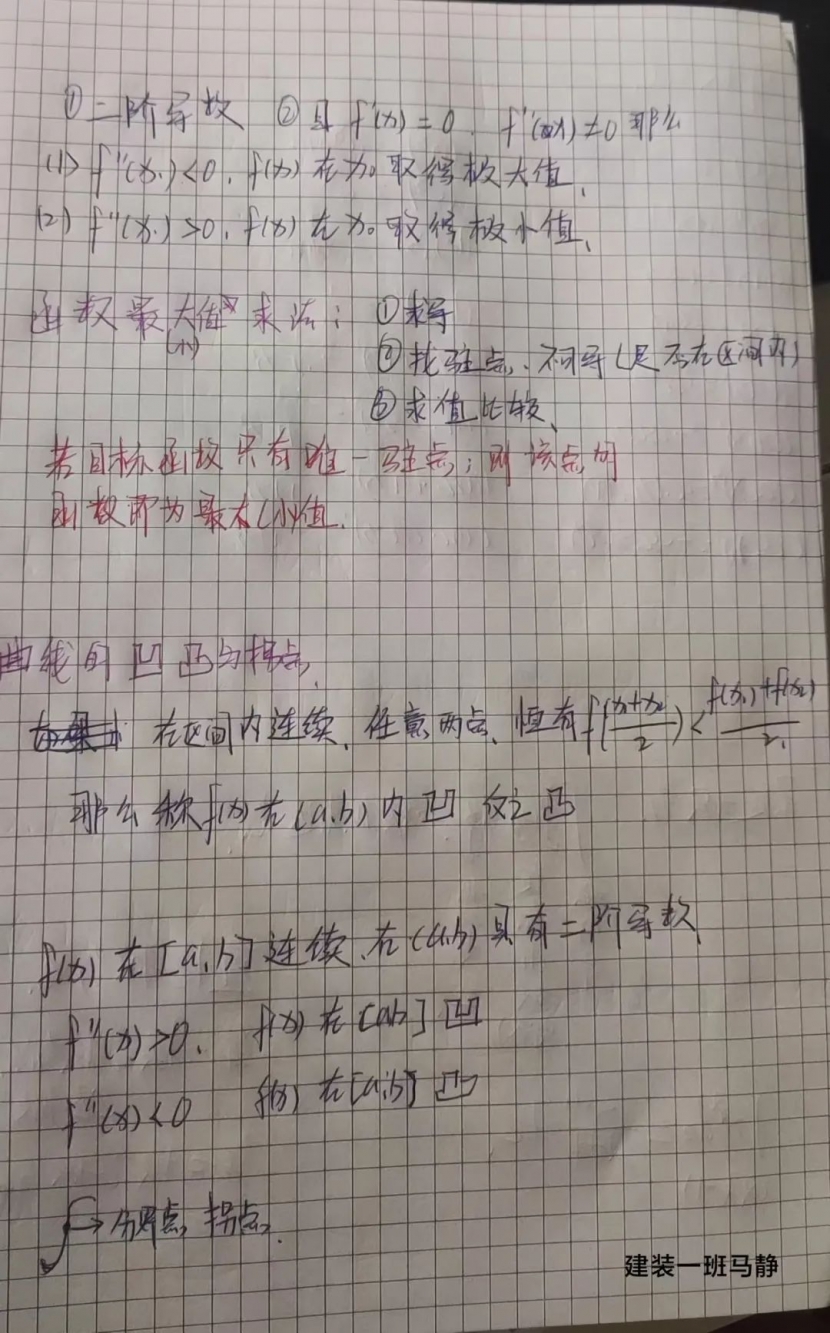 ①二阶导数 ②且 f'(x)=0. f''(x)≠0 那么
(1) f''(x₀)<0, f(x) 在 x₀ 取得极大值,
(2) f''(x₀)>0, f(x) 在 x₀ 取得极小值、
函数最大值求法: ①求导
(小)
②找驻点、不可导(是否在区间内)
③求值比较、
若目标函数只有唯一驻点; 则该点的
函数即为最大(小)值.
曲线的凹凸与拐点,
在区间内连续、任意两点、恒有 f(x₁+x₂/2) < f(x₁)+f(x₂)/2,
那么称 f(x) 在 (a,b) 内凹 反之凸
f(x) 在 [a,b] 连续, 在 (a,b) 具有二阶导数
f''(x)>0. f(x) 在 [ab] 凹
f''(x)<0 f(x) 在 [a,b] 凸
→分界点, 拐点,
建装一班马静